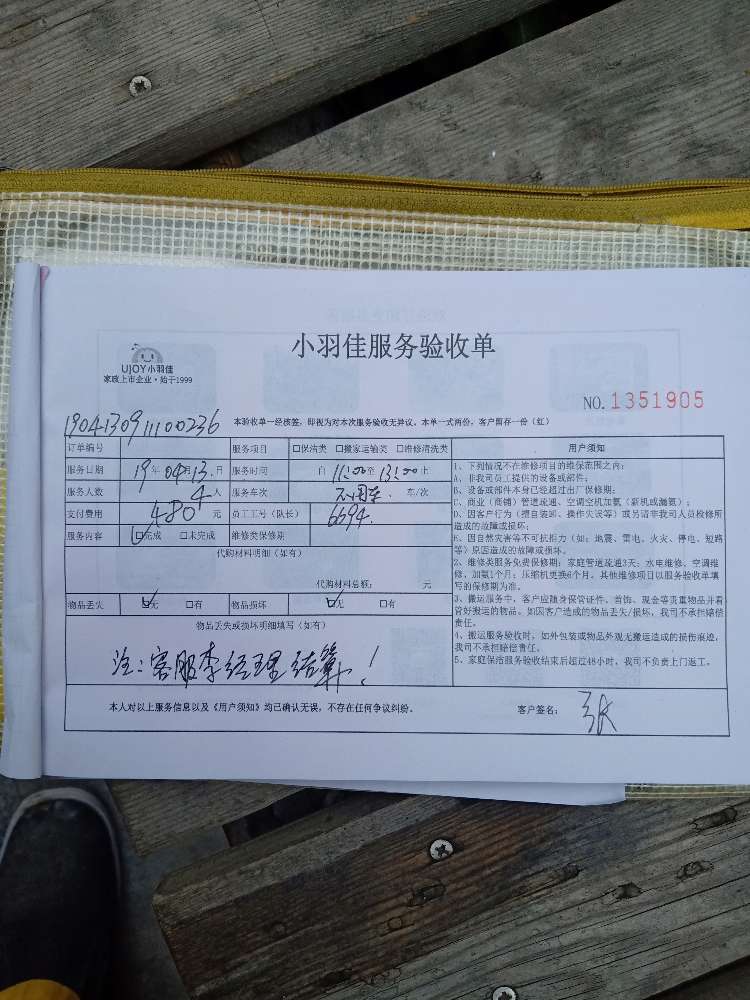 小羽佳服务验收单
UJOY小羽佳
家政上市企业·始于1999
NO.1351905
190413091100236
本验收单一经核签，即视为对本次服务验收无异议。本单一式两份，客户留存一份（红）
订单编号 服务项目 □保洁类 □搬家运输类 □维修清洗类
服务日期 19年04月13日 服务时间 自11:00至13:00止
服务人数 4人 服务车次 不用车. 车/次
支付费用 480元 员工工号（队长） 6694.
服务内容 ☑完成 □未完成 维修类保修期
代购材料明细（如有）
代购材料总额： 元
物品丢失 ☑无 □有 物品损坏 ☑无 □有
物品丢失或损坏明细填写（如有）
注：客服李经理结算！
用户须知
1、下列情况不在维修项目的维保范围之内：
A、非我司员工提供的设备或部件；
B、设备或部件本身已经超过出厂保修期；
C、商业（商铺）管道疏通、空调空机加氨（新机或漏氨）；
D、因客户行为（擅自装卸、操作失误等）或另请非我司人员检修所
造成的故障或损坏；
E、因自然灾害等不可抗拒力（如：地震、雷电、火灾、停电、短路
等）原因造成的故障或损坏。
2、维修类服务免费保修期：家庭管道疏通3天；水电维修、空调维
修、加氨1个月；压缩机更换6个月。其他维修项目以服务验收单填
写的保修期为准。
3、搬运服务中，客户应随身保管证件、首饰、现金等贵重物品并看
管好搬运的物品。如因客户造成的物品丢失/损坏，我司不承担赔偿
责任。
4、搬运服务验收时，如外包装或物品外观无搬运造成的损伤痕迹，
我司不承担赔偿责任。
5、家庭保洁服务验收结束后超过48小时，我司不负责上门返工。
本人对以上服务信息以及《用户须知》均已确认无误，不存在任何争议纠纷。 客户签名： 张